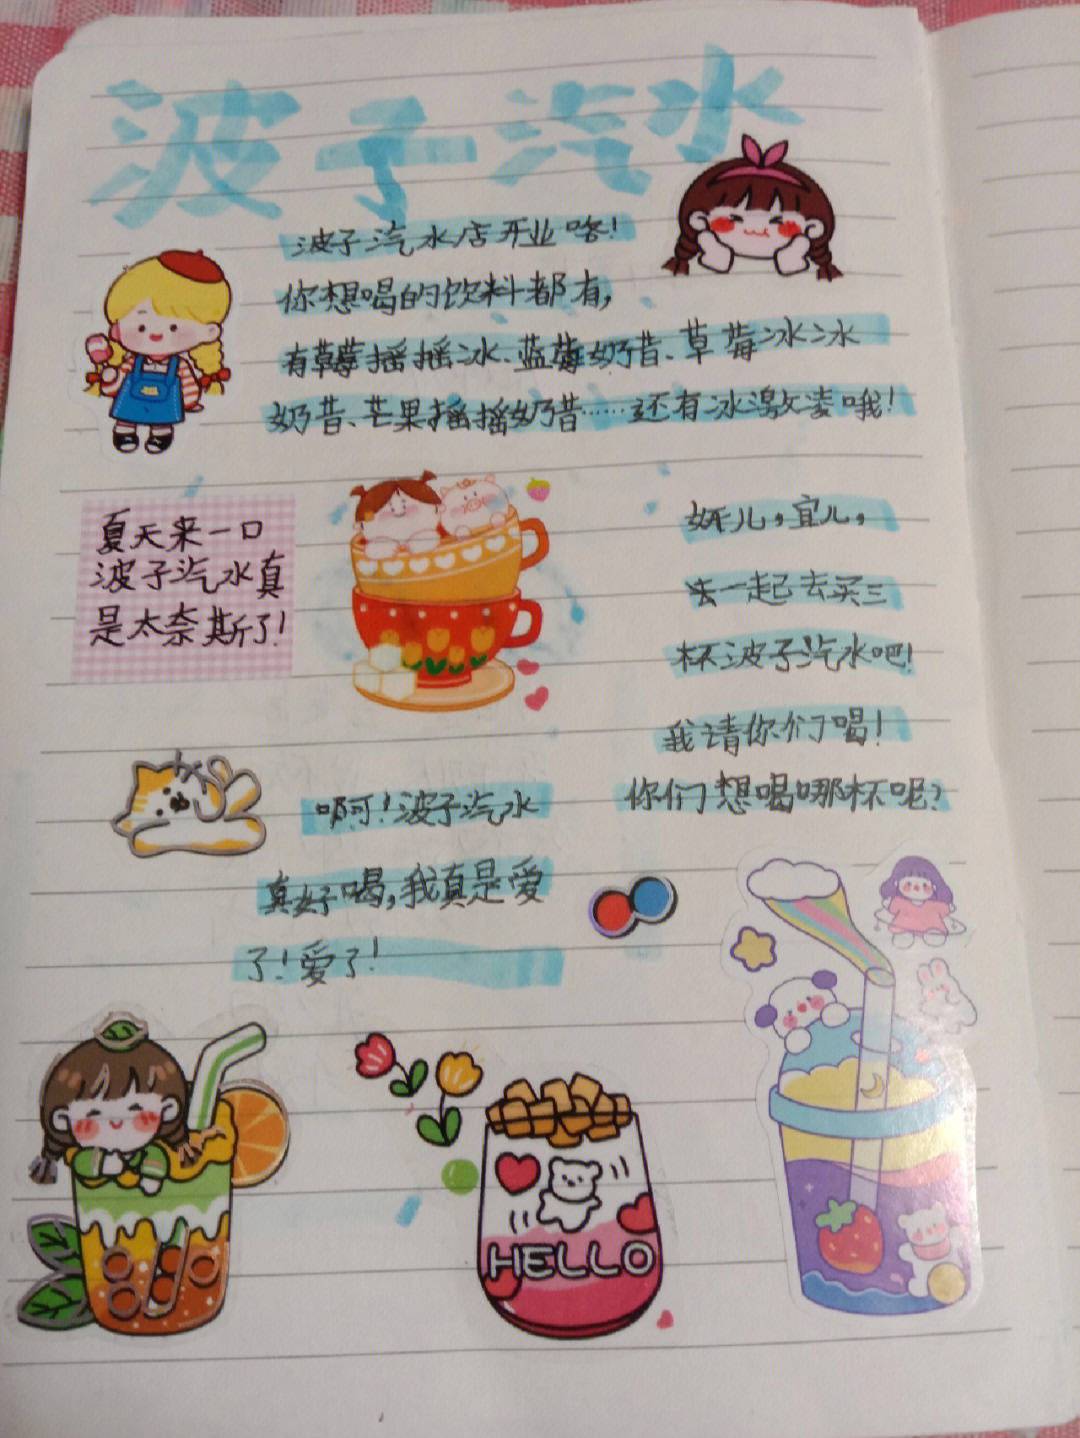 波子汽水
波子汽水店开业咯!
你想喝的饮料都有,
有草莓摇摇冰、蓝莓奶昔、草莓冰冰
奶昔、芒果摇摇奶昔……还有冰激凌哦!
夏天来一口
波子汽水真
是太奈斯了!
妍儿,宜儿,
去一起去买三
杯波子汽水吧!
我请你们喝!
你们想喝哪杯呢?
啊!波子汽水
真好喝,我真是爱
了!爱了!
HELLO